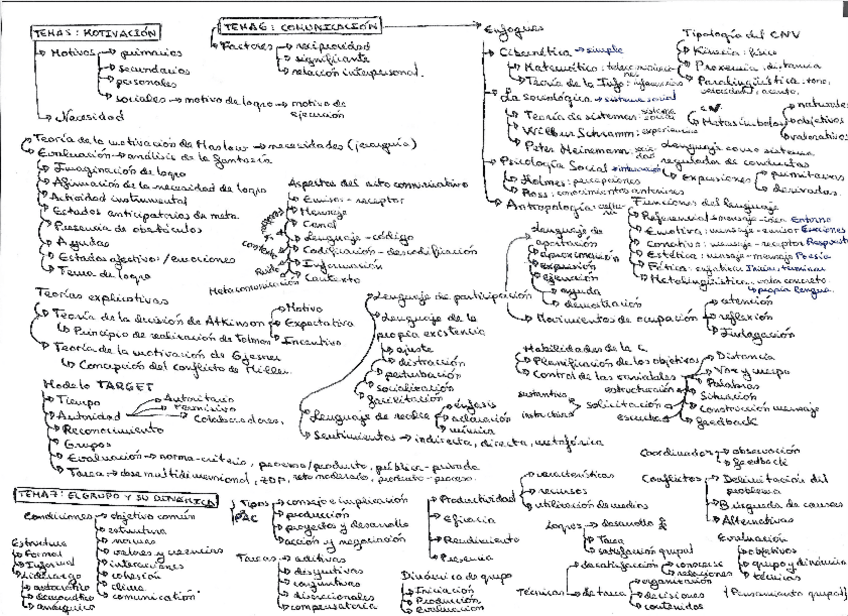 TEMA 5: MOTIVACIÓN
Motivos → primarios
secundarios
personales
sociales → motivo de logro → motivo de
ejecución
Necesidad
Teoría de la motivación de Maslow → necesidades (jerarquía)
Evaluación → análisis de la fantasía
Imaginación de logro
Afirmación de la necesidad de logro
Actividad instrumental
Estados anticipatorios de meta
Presencia de obstáculos
Ayudas
Estados afectivos/emociones
Tema de logro
Teorías explicativas
Teoría de la decisión de Atkinson
Motivo
Expectativa
Incentivo
Principio de realización de Tolman
Teoría de la motivación de Gjesme
Concepción del conflicto de Miller
Modelo TARGET
Tiempo
Autoridad
Autoritario
Permisivo
Colaboradores.
Reconocimiento
Grupos
Evaluación → norma-criterio, proceso/producto, pública-privada
Tarea → dose multidimensional, ZDP, reto moderado, producto-proceso.
TEMA 6: COMUNICACIÓN
Factores → reciprocidad
significante
relación interpersonal.
Aspectos del acto comunicativo
Emisor - receptor
Mensaje
Canal
Lenguaje - código
Codificación - descodificación
Información
Contexto
Ruido
Metacomunicación
Enfoques
Cibernética → simple
Matemático:
Teoría de la Info:
La sociológica → sistema social
Teoría de sistemas:
Wilbur Schramm: experiencias
Peter Heinemann:
Psicología Social →
Holmes: percepciones
Ross: conocimientos anteriores
Antropología:
Tipología del CNV
Kinesia: físico
Proxemia: distancia
Paralingüística: tono,
CV
Metasímbolos
naturales
objetivos
valorativos
Lenguaje como sistema
regulador de conductas
expresiones
primitivas
derivadas.
Funciones del lenguaje
Referencial → mensaje - idea Entorno
Emotiva: mensaje - emisor Emociones
Conativa: mensaje - receptor Respuesta
Estética: mensaje - mensaje Poesía
Fática:
Metalingüística:
propia lengua.
Lenguaje de
aportación
aproximación
expresión
ejecución
ayuda
demostración
Movimientos de ocupación
atención
reflexión
indagación
Lenguaje de participación
Lenguaje de la
propia existencia
ajuste
distracción
perturbación
socialización
facilitación
Lenguaje de realce
énfasis
aclaración
mímica
Sentimientos → indirecta, directa, metafórica
Habilidades de la C
Planificación de los objetivos
Control de las variables
Distancia
Voz y cuerpo
Palabras
Situación
Construcción mensaje
feedback
estructuración
solicitación
escucha
Coordinador → observación
feedback
TEMA 7: EL GRUPO Y SU DINÁMICA
Condiciones → objetivo común
estructura
normas
valores y creencias
interacciones
cohesión
clima
comunicación
Estructura
Formal
Informal
Liderazgo
autocrático
democrático
anárquico
Tipos
PAC
consejo e implicación
producción
proyectos y desarrollo
acción y negociación
Tareas → aditivas
disyuntivas
conjuntivas
discrecionales
compensatoria
Productividad
Eficacia
Rendimiento
Presencia
características
recursos
utilización de medios
Dinámica de grupo
Iniciación
Producción
Evaluación
Logros → desarrollo
Tarea
satisfacción grupal
Técnicas
de satisfacción
conocerse
relaciones
de tarea
organización
decisiones
contenidos
Conflictos → Delimitación del
problema
Búsqueda de causas
Alternativas
Evaluación
objetivos
grupo y dinámica
técnicas
(Pensamiento grupal)